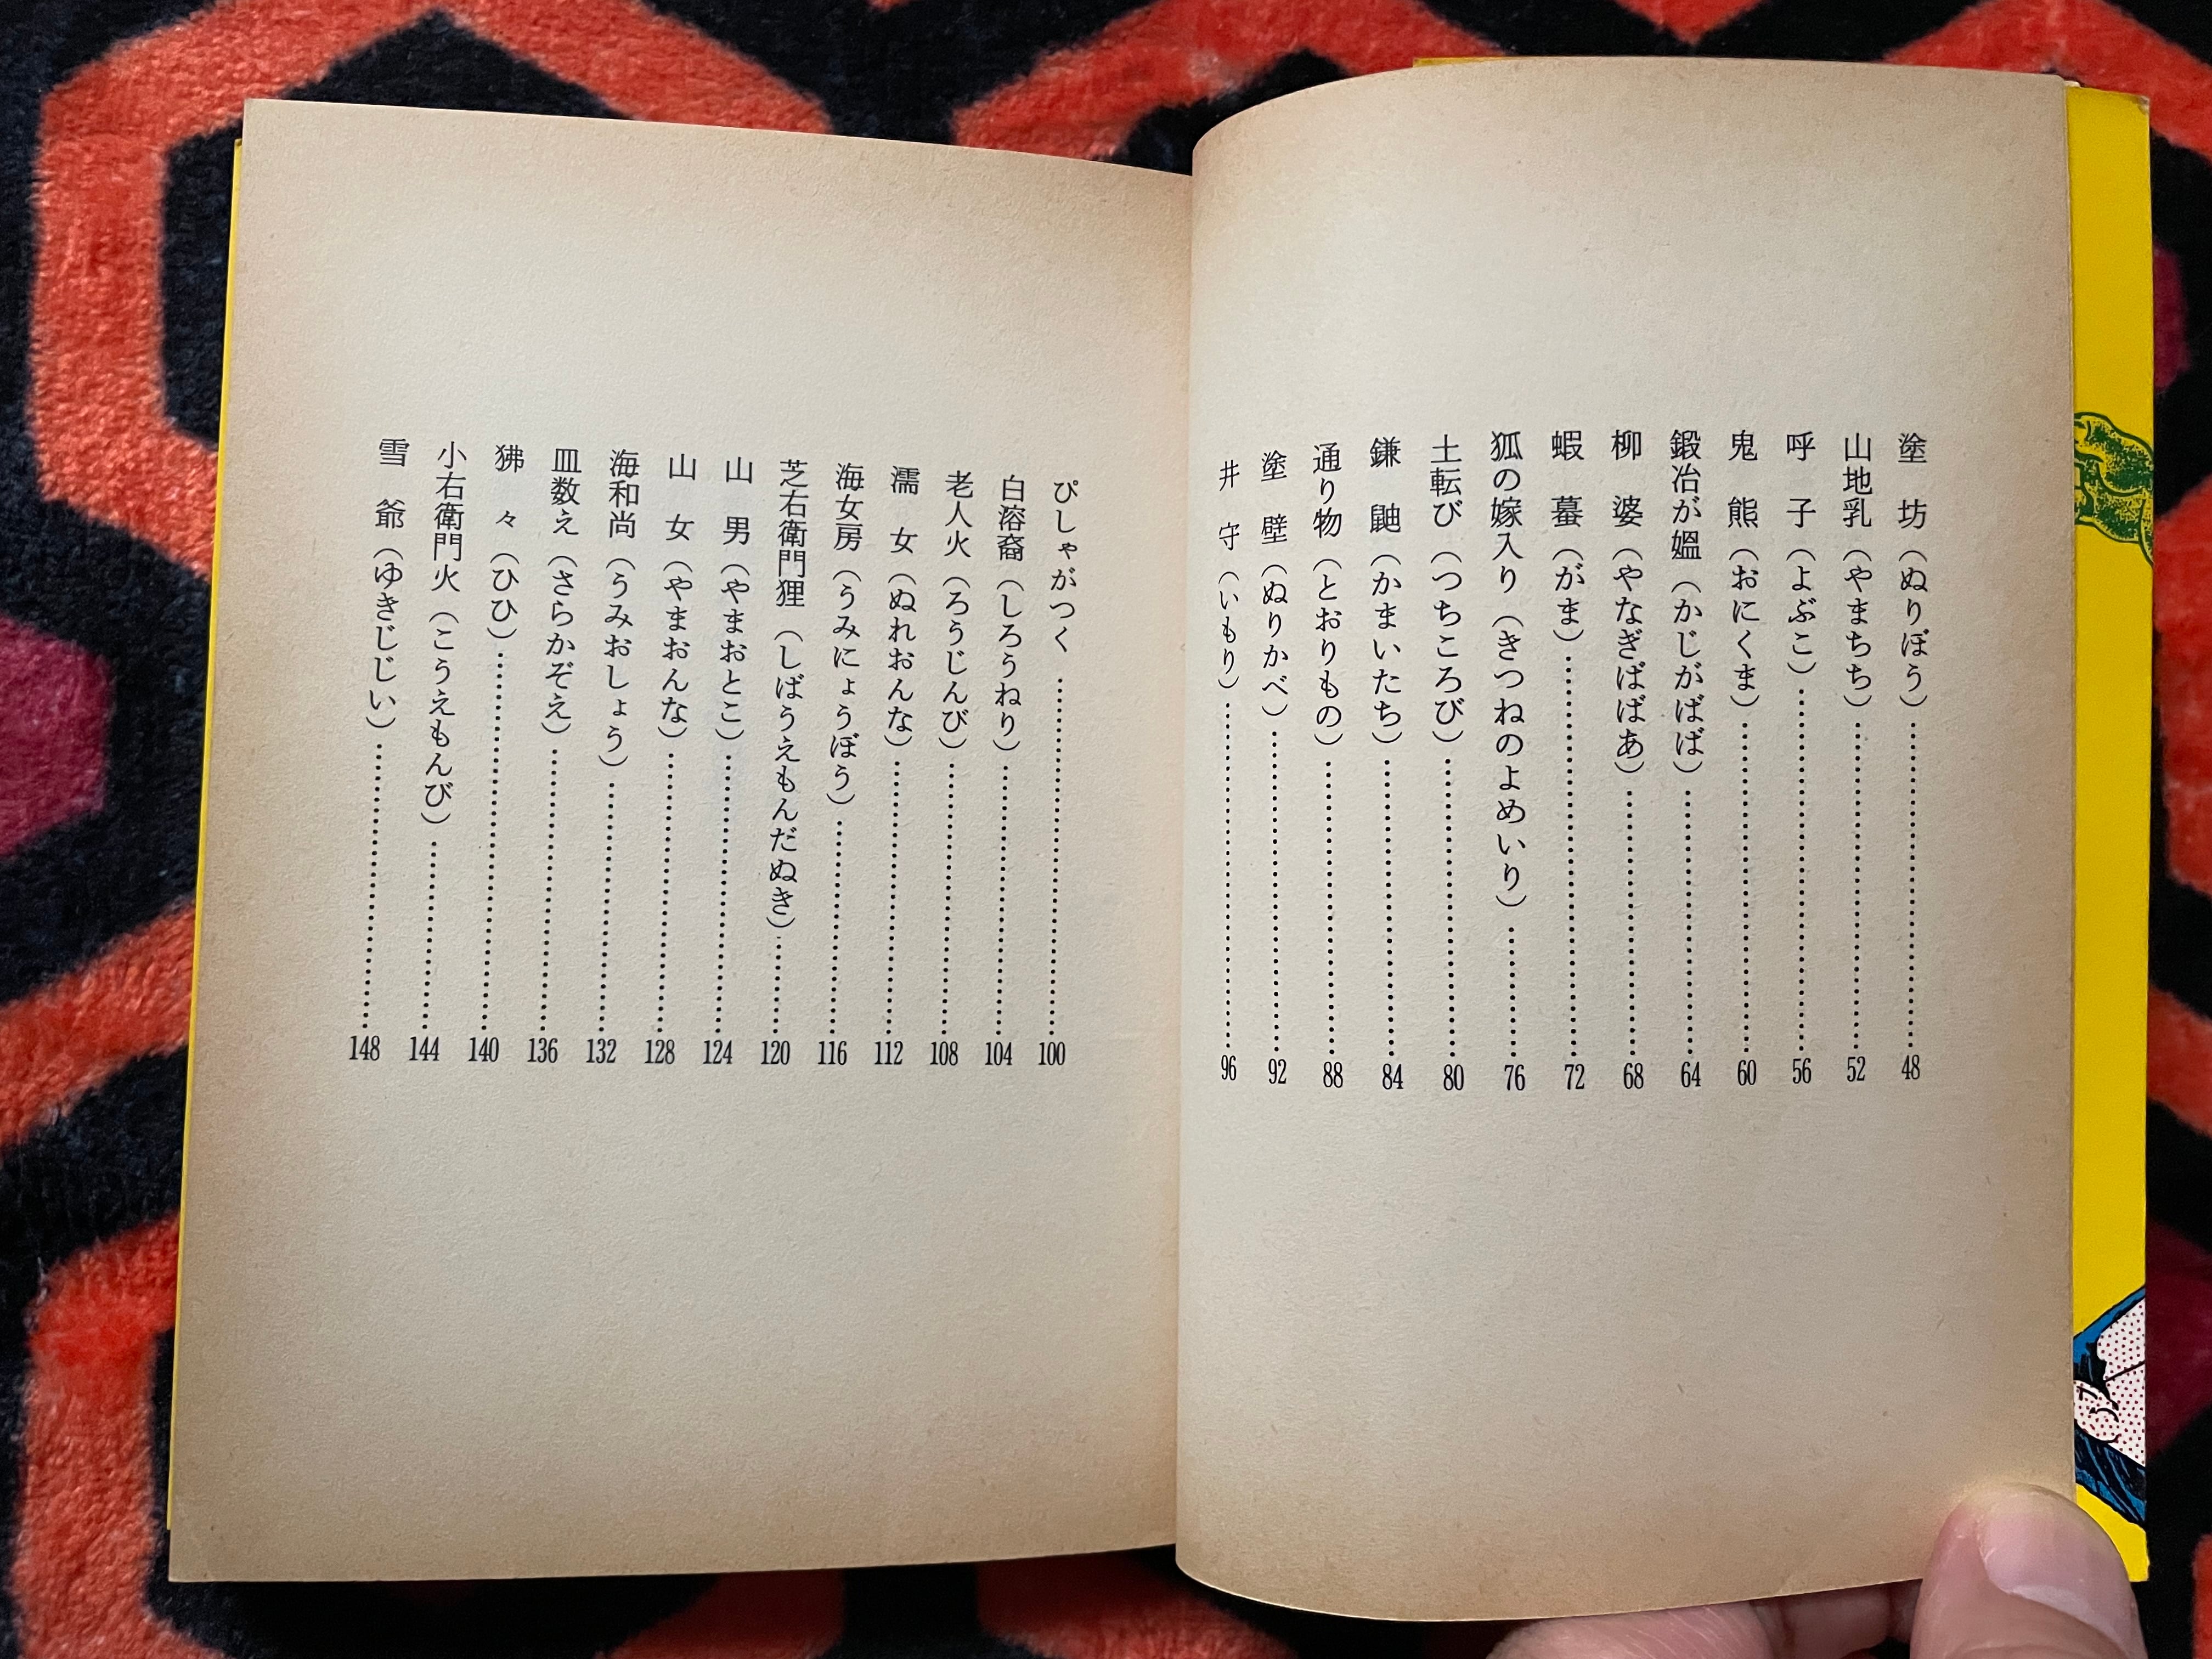 塗 坊（ぬりぼう）…………48
山地乳（やまちち）…………52
呼 子（よぶこ）…………56
鬼 熊（おにくま）…………60
鍛冶が媼（かじがばば）…………64
柳 婆（やなぎばばあ）…………68
蝦 蟇（がま）…………72
狐の嫁入り（きつねのよめいり）…………76
土転び（つちころび）…………80
鎌 鼬（かまいたち）…………84
通り物（とおりもの）…………88
塗 壁（ぬりかべ）…………92
井 守（いもり）…………96
ぴしゃがつく…………100
白溶裔（しろうねり）…………104
老人火（ろうじんび）…………108
濡 女（ぬれおんな）…………112
海女房（うみにょうぼう）…………116
芝右衛門狸（しばうえもんだぬき）…………120
山 男（やまおとこ）…………124
山 女（やまおんな）…………128
海和尚（うみおしょう）…………132
皿数え（さらかぞえ）…………136
狒 々（ひひ）…………140
小右衛門火（こうえもんび）…………144
雪 爺（ゆきじじい）…………148